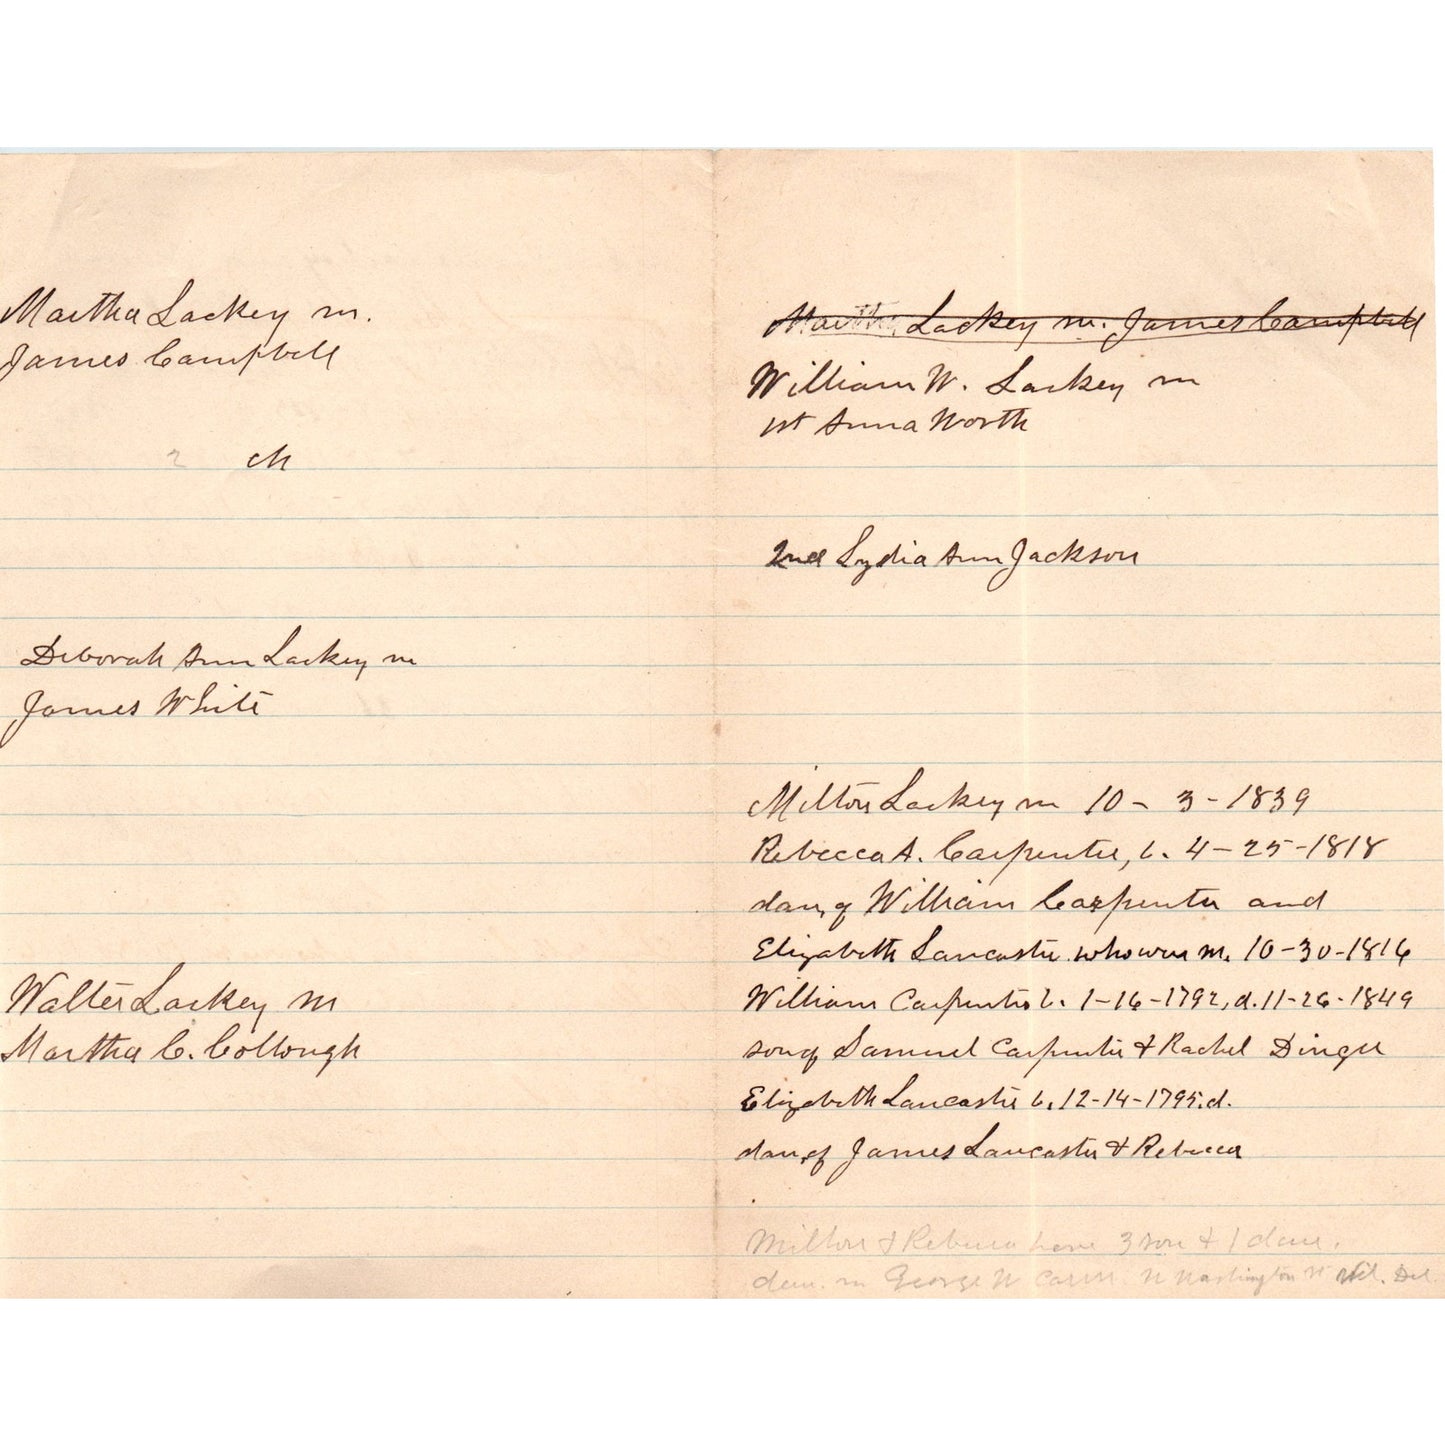 Martha Lackey m.
James Campbell
ch
Deborah Ann Lackey m
James White
Walter Lackey m
Martha C. Collough
Martha Lackey m. James Campbell
William W. Lackey m
1st Anna Worth
2nd Lydia Ann Jackson
Milton Lackey m 10 - 3 - 1839
Rebecca A. Carpenter, b. 4 - 25 - 1818
dau, of William Carpenter and
Elizabeth Lancaster who were m. 10-30-1816
William Carpenter b. 1-16-1792, d. 11-26-1849
son of Samuel Carpenter & Rachel Dingee
Elizabeth Lancaster b. 12-14-1795. d.
dau, of James Lancaster & Rebecca
Milton & Rebecca have 3 son & 1 dau.
dau. m George W N Washington St Wil. Del.